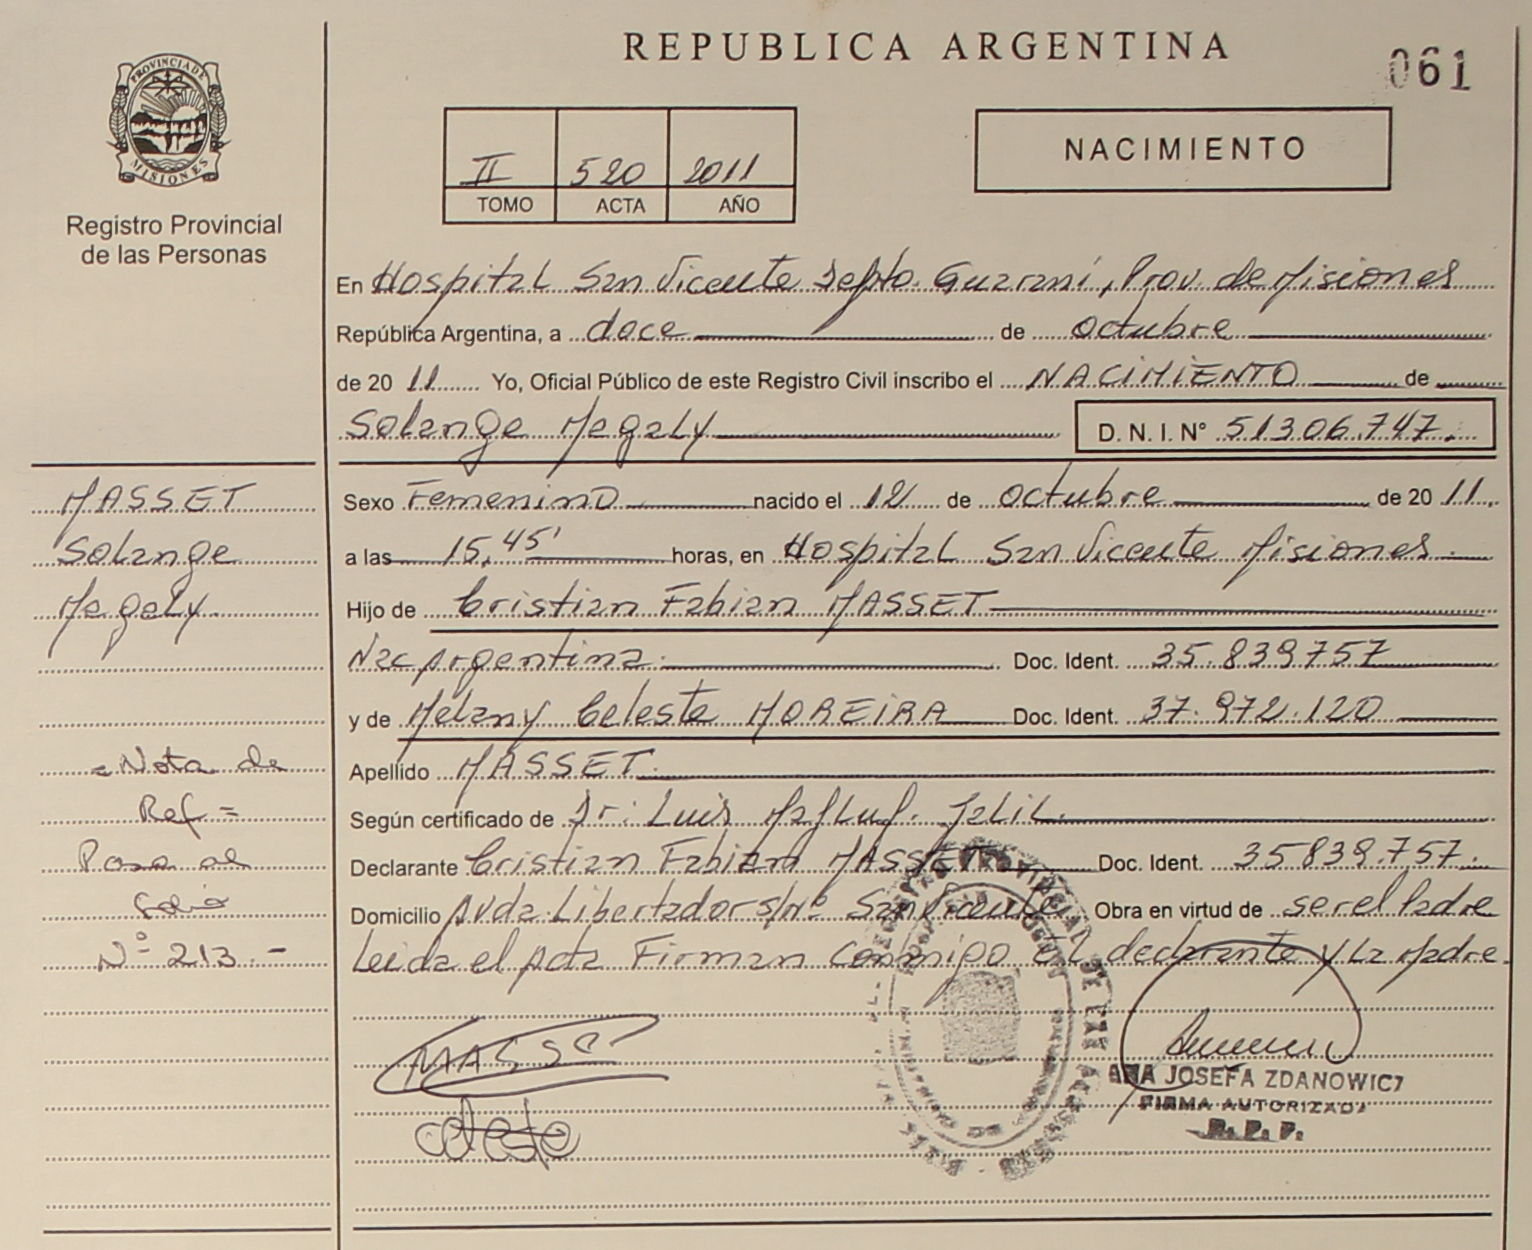 REPUBLICA ARGENTINA
061
PROVINCIA DE
MISIONES
Registro Provincial
de las Personas
II 520 2011
TOMO ACTA AÑO
NACIMIENTO
En Hospital San Vicente Depto. Guarani, Prov. de Misiones
República Argentina, a doce de octubre
de 20 11 Yo, Oficial Público de este Registro Civil inscribo el NACIMIENTO de
Solange Magaly D. N. I. Nº 51306.747.
MASSET
Solange
Magaly
Sexo Femenino nacido el 12 de octubre de 20 11
a las 15,45' horas, en Hospital San Vicente Misiones
Hijo de Cristian Fabian MASSET
Nac Argentina. Doc. Ident. 35.839757
y de Melany Celeste MOREIRA Doc. Ident. 37.972.120
Apellido MASSET
Según certificado de Dr: Luis Jalil
Declarante Cristian Fabian MASSET Doc. Ident. 35839.757.
Domicilio Avda. Libertador s/nº San Vicente Obra en virtud de ser el Padre
Leida el Acta Firman Conmigo El declarante y La Madre.
= Nota de
Ref =
Pasa al
folio
Nº 213.-
MASSET
celeste
ANA JOSEFA ZDANOWICZ
FIRMA AUTORIZADA
R. P. P.